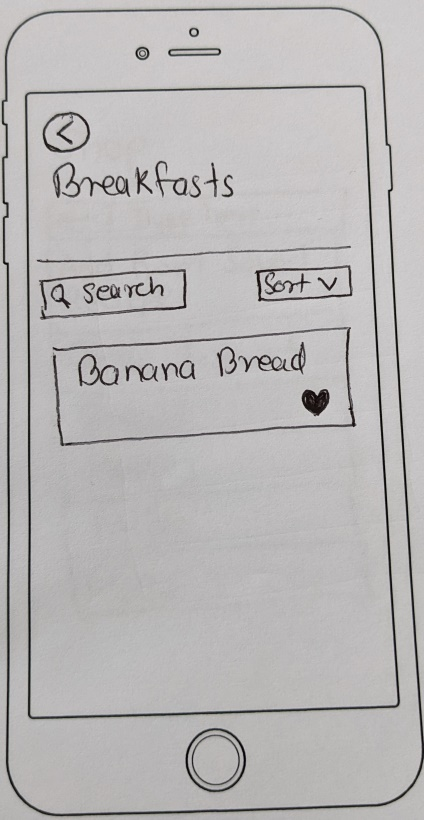 Breakfasts
Search
Sort
Banana Bread